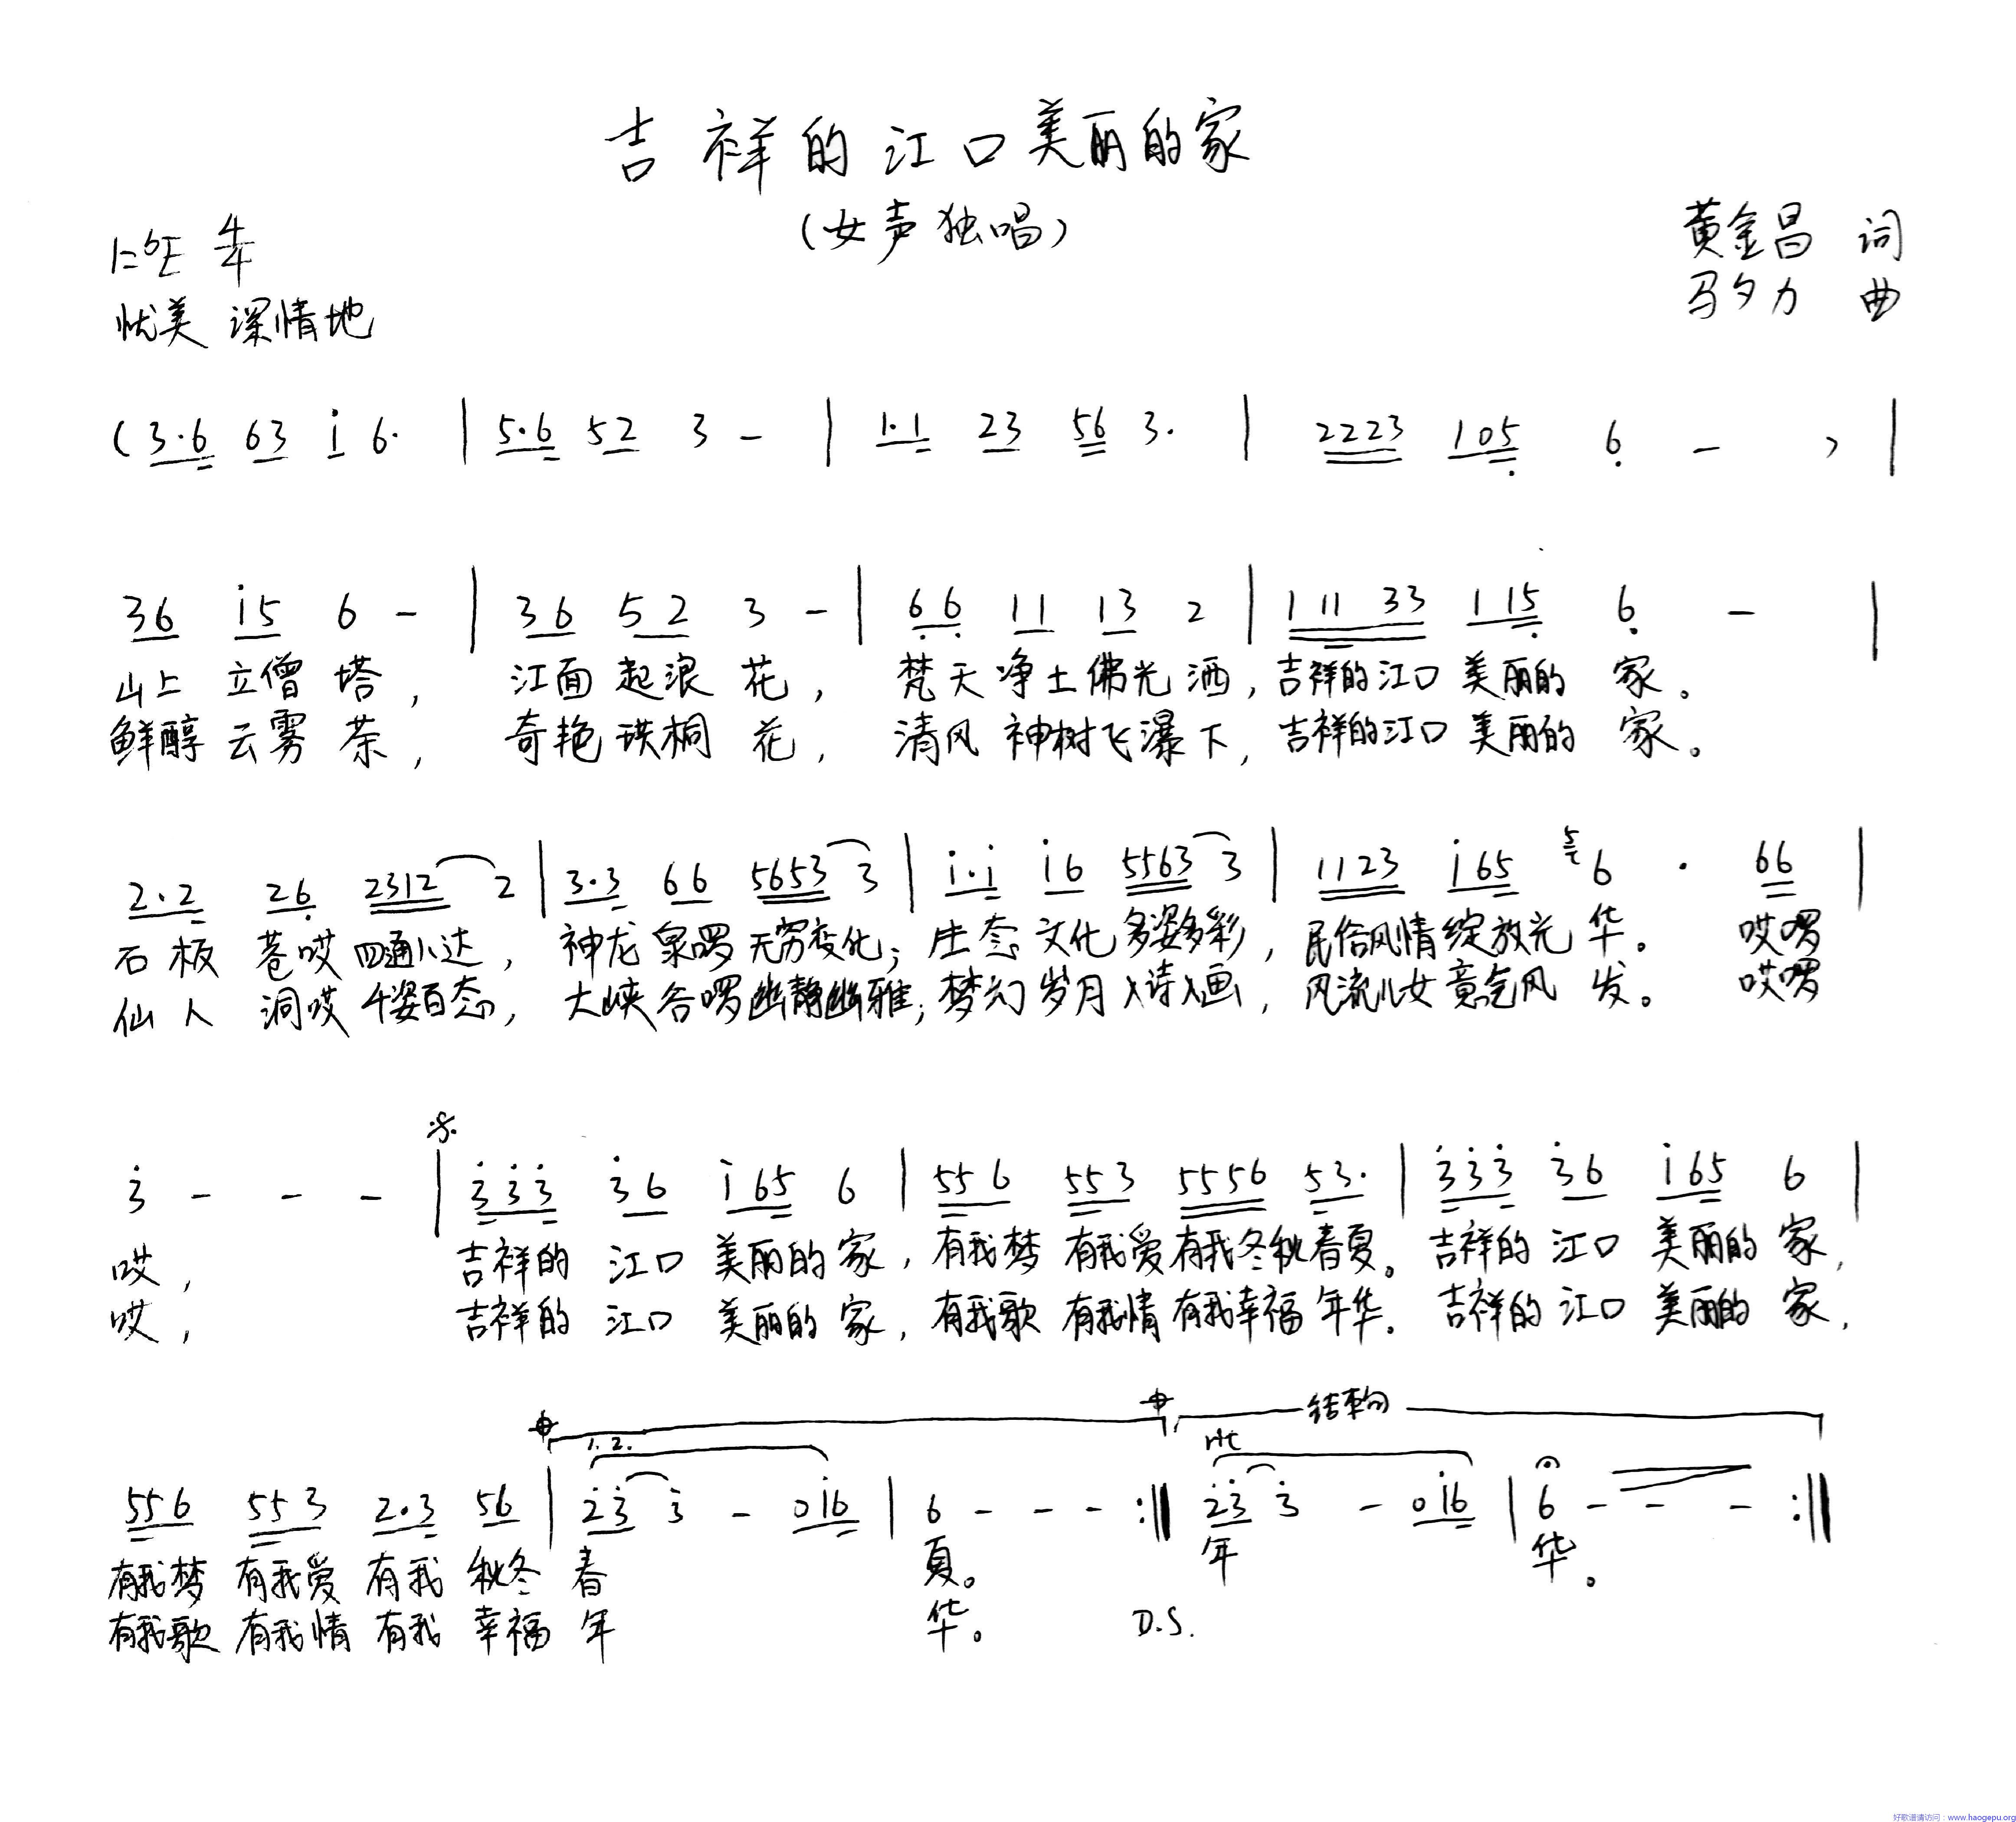 吉祥的江口美丽的家
(女声独唱)
1=♭E 4/4
黄金昌 词
优美 深情地
马夕力 曲
(3·6 63 i 6· | 5·6 52 3 - | 1·1 23 56 3· | 2223 105 6 - ) |
36 i5 6 - | 36 52 3 - | 66 11 13 2 | 111 33 115 6 - |
山上 立僧 塔, 江面 起浪 花, 梵天净土佛光 洒, 吉祥的江口 美丽的 家。
鲜醇 云雾 茶, 奇艳 珙桐 花, 清风 神树飞瀑 下, 吉祥的江口 美丽的 家。
2·2 26 2312 2 | 3·3 66 5653 3 | i·i i6 5563 3 | 1123 i65 5 6 · 66 |
石板 苍哎 四通八达, 神龙 泉啰 无穷变化; 生态 文化 多姿多彩, 民俗风情 绽放光 华。 哎啰
仙人 洞哎 千姿百态, 大峡 谷啰 幽静幽雅; 梦幻 岁月 入诗入画, 风流儿女 意气风 发。 哎啰
3 - - - | 333 36 i65 6 | 556 553 5556 53· | 333 36 i65 6 |
哎, 吉祥的 江口 美丽的 家, 有我梦 有我爱 有我冬秋 春夏。 吉祥的 江口 美丽的 家,
哎, 吉祥的 江口 美丽的 家, 有我歌 有我情 有我幸福 年华。 吉祥的 江口 美丽的 家,
结束句
1. 2. rit
556 553 2·3 56 | 23 3 - 0i6 | 6 - - - :‖ 23 3 - 0i6 | 6 - - - :‖
有我梦 有我爱 有我 秋冬 春 夏。 年 华。
有我歌 有我情 有我 幸福 年 华。 D.S.
好歌谱请访问:www.haogepu.org